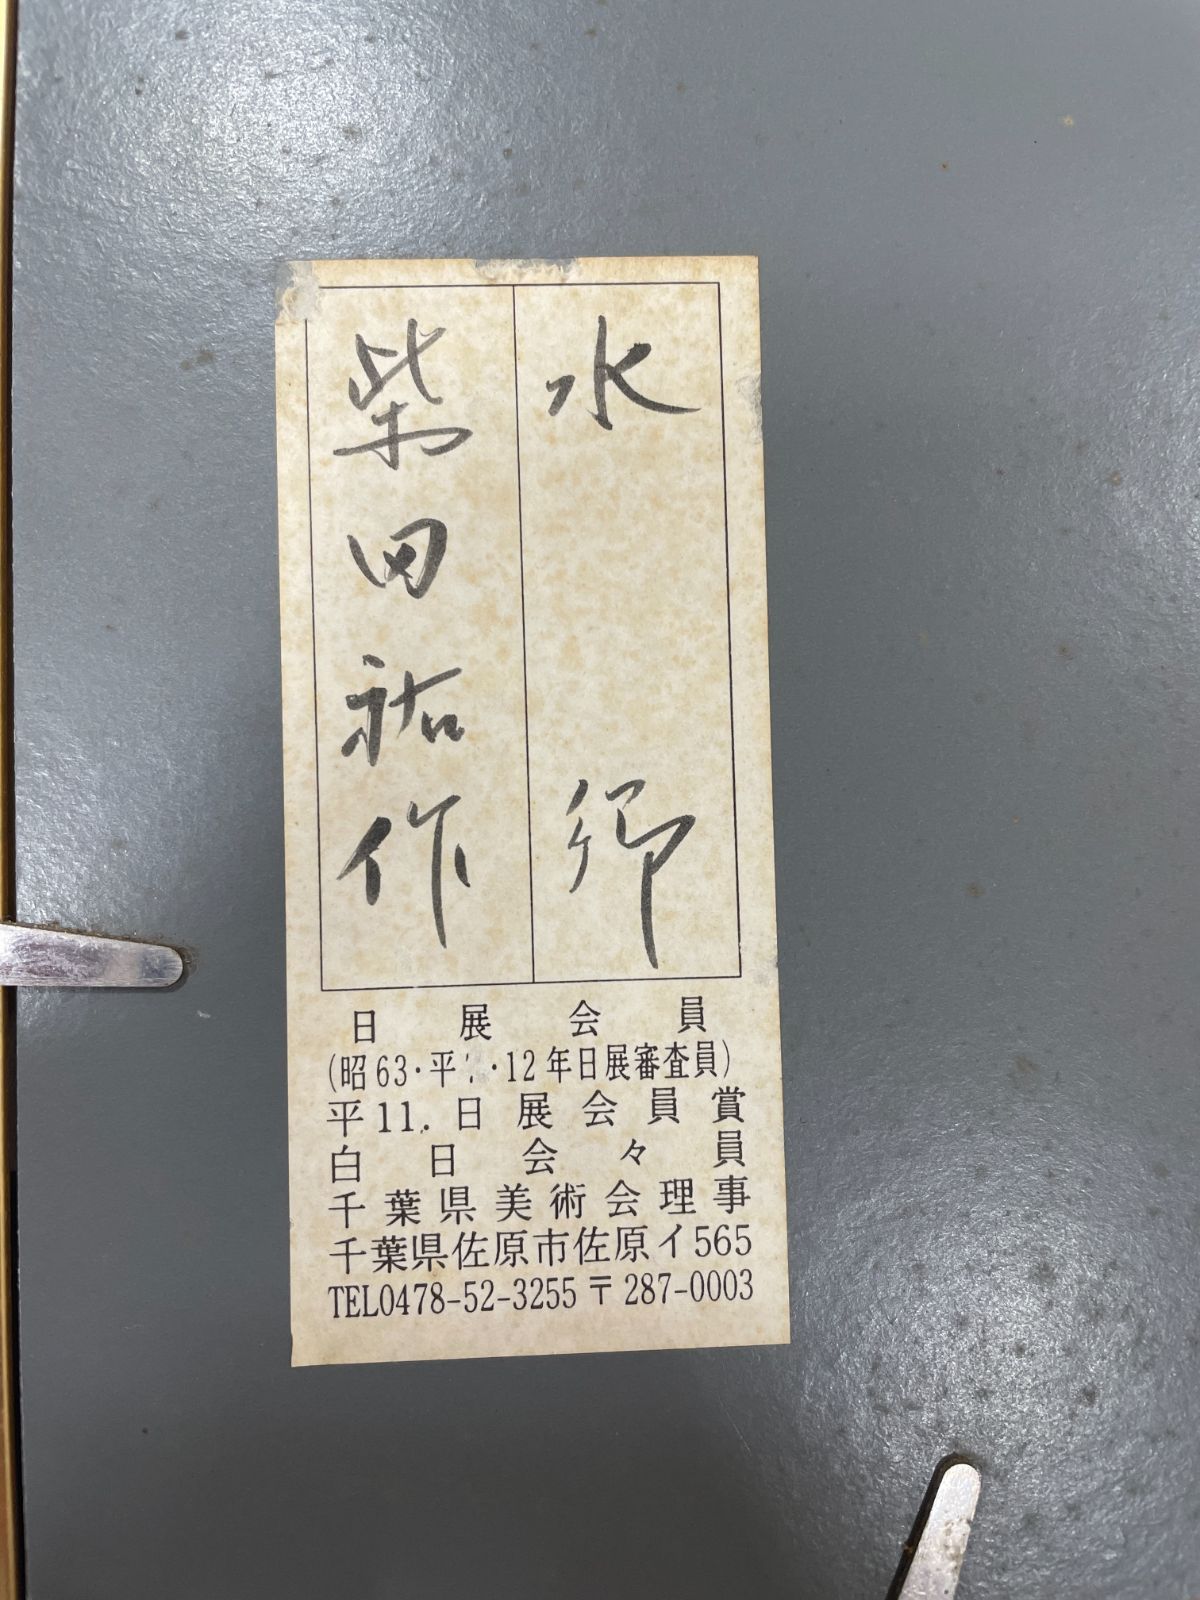 水郷
柴田祐作
日展会員
(昭63・平 ・12年日展審査員)
平11.日展会員賞
白日会々員
千葉県美術会理事
千葉県佐原市佐原イ565
TEL0478-52-3255 〒287-0003